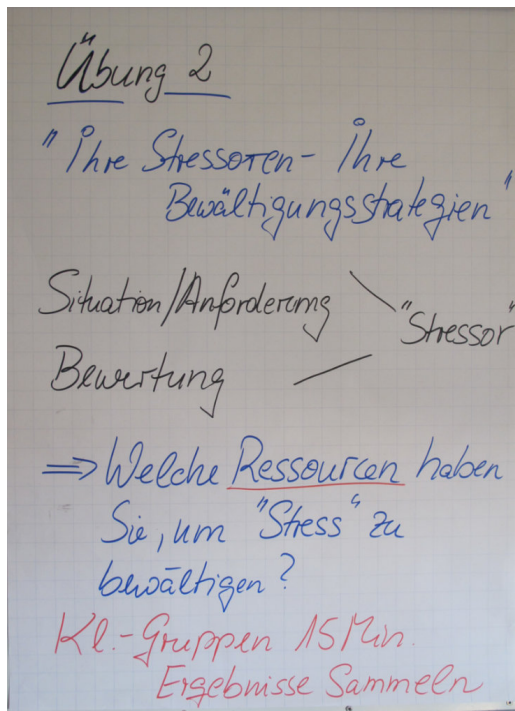 Übung 2
"Ihre Stressoren - Ihre
Bewältigungsstrategien"
Situation/Anforderung
"Stressor"
Bewertung
=> Welche Ressourcen haben
Sie, um "Stress" zu
bewältigen?
Kl.-Gruppen 15 Min.
Ergebnisse Sammeln